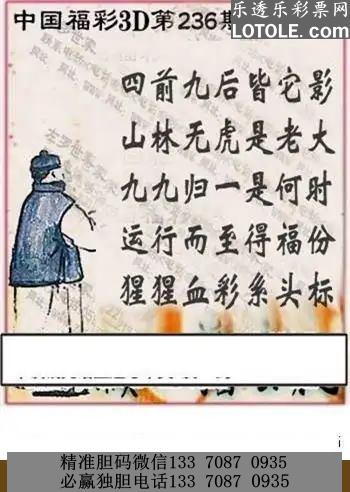 乐透乐彩票网
LOTOLE.COM
中国福彩3D第236期
四前九后皆它影
山林无虎是老大
九九归一是何时
运行而至得福份
猩猩血彩系头标
精准胆码微信133 7087 0935
必赢独胆电话133 7087 0935